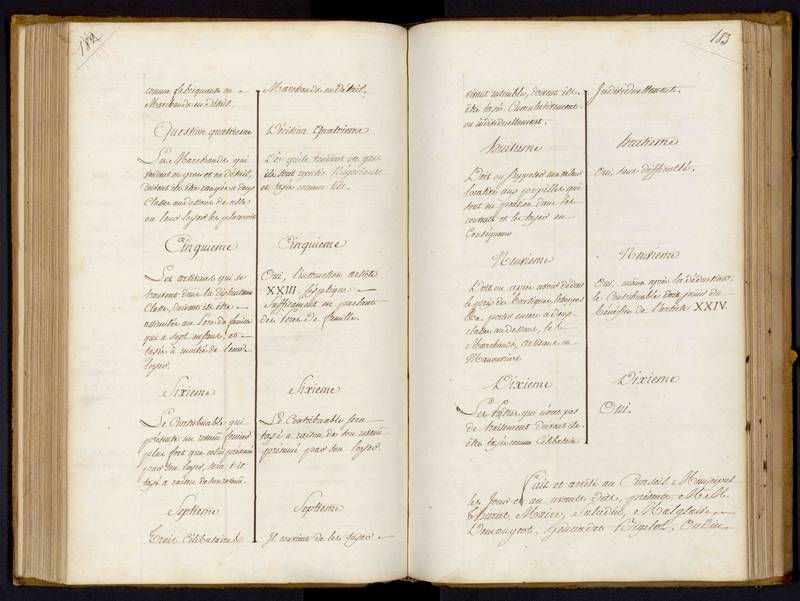 182
comme fabriquans ou
Marchands en détail.
Question quatrieme
Les Marchands qui
vendent en gros et en détail,
doivent ils être rangés a deux
Classes au dessus de celle
ou leur loyer les placeroit
Cinquieme
Les artisans qui se
trouvent dans la dixhuitieme
Classe, doivent ils être
assimilés au Pere de famille
qui a sept enfans, et
taxés à moitié de leur
loyer.
Sixieme
Le Contribuable qui
présente un revenu foncier
plus fort que celui présumé
par son loyer, sera t-il
taxé a raison de son revenu.
Septieme
Trois Célibataires
Marchands en détail.
Décision Quatrieme
Dès qu'ils vendent en gros
ils sont réputés Négocians
et taxés comme tels.
Cinquieme
Oui, l'instruction article
XXIII. s'explique
suffisament en parlant
des Peres de famille.
Sixieme
Le Contribuable sera
taxé a raison de son revenu
présumé par son loyer.
Septieme
Il convient de les taxer
183
vivant ensemble, doivent ils
être taxés Cumulativement
ou individuellement.
huitieme
Doit on supposer une valeur
locative aux pupilles qui
sont en pension dans les
couvents et les taxer en
Conséquence
Neuvieme
Doit on après avoir déduit
le prix des Boutiques, fabriques
&a. porter encore a deux
classes au dessous, les
Marchands, artisans ou
Manouvriers
Dixieme
Les Prêtres qui n'ont pas
de traitement doivent ils
être taxés comme Célibataires
Individuellement.
huitieme
Oui, sans difficulté.
Neuvieme
Oui, même après la déduction
le Contribuable doit jouir du
bénéfice de l'article XXIV.
Dixieme
Oui.
Fait et arrêté au Conseil Municipal
les Jour et an avant dits, présents, M.M.
Maire, Saladin, Malglaive,
Demangeot, Bigelot, Oudin,